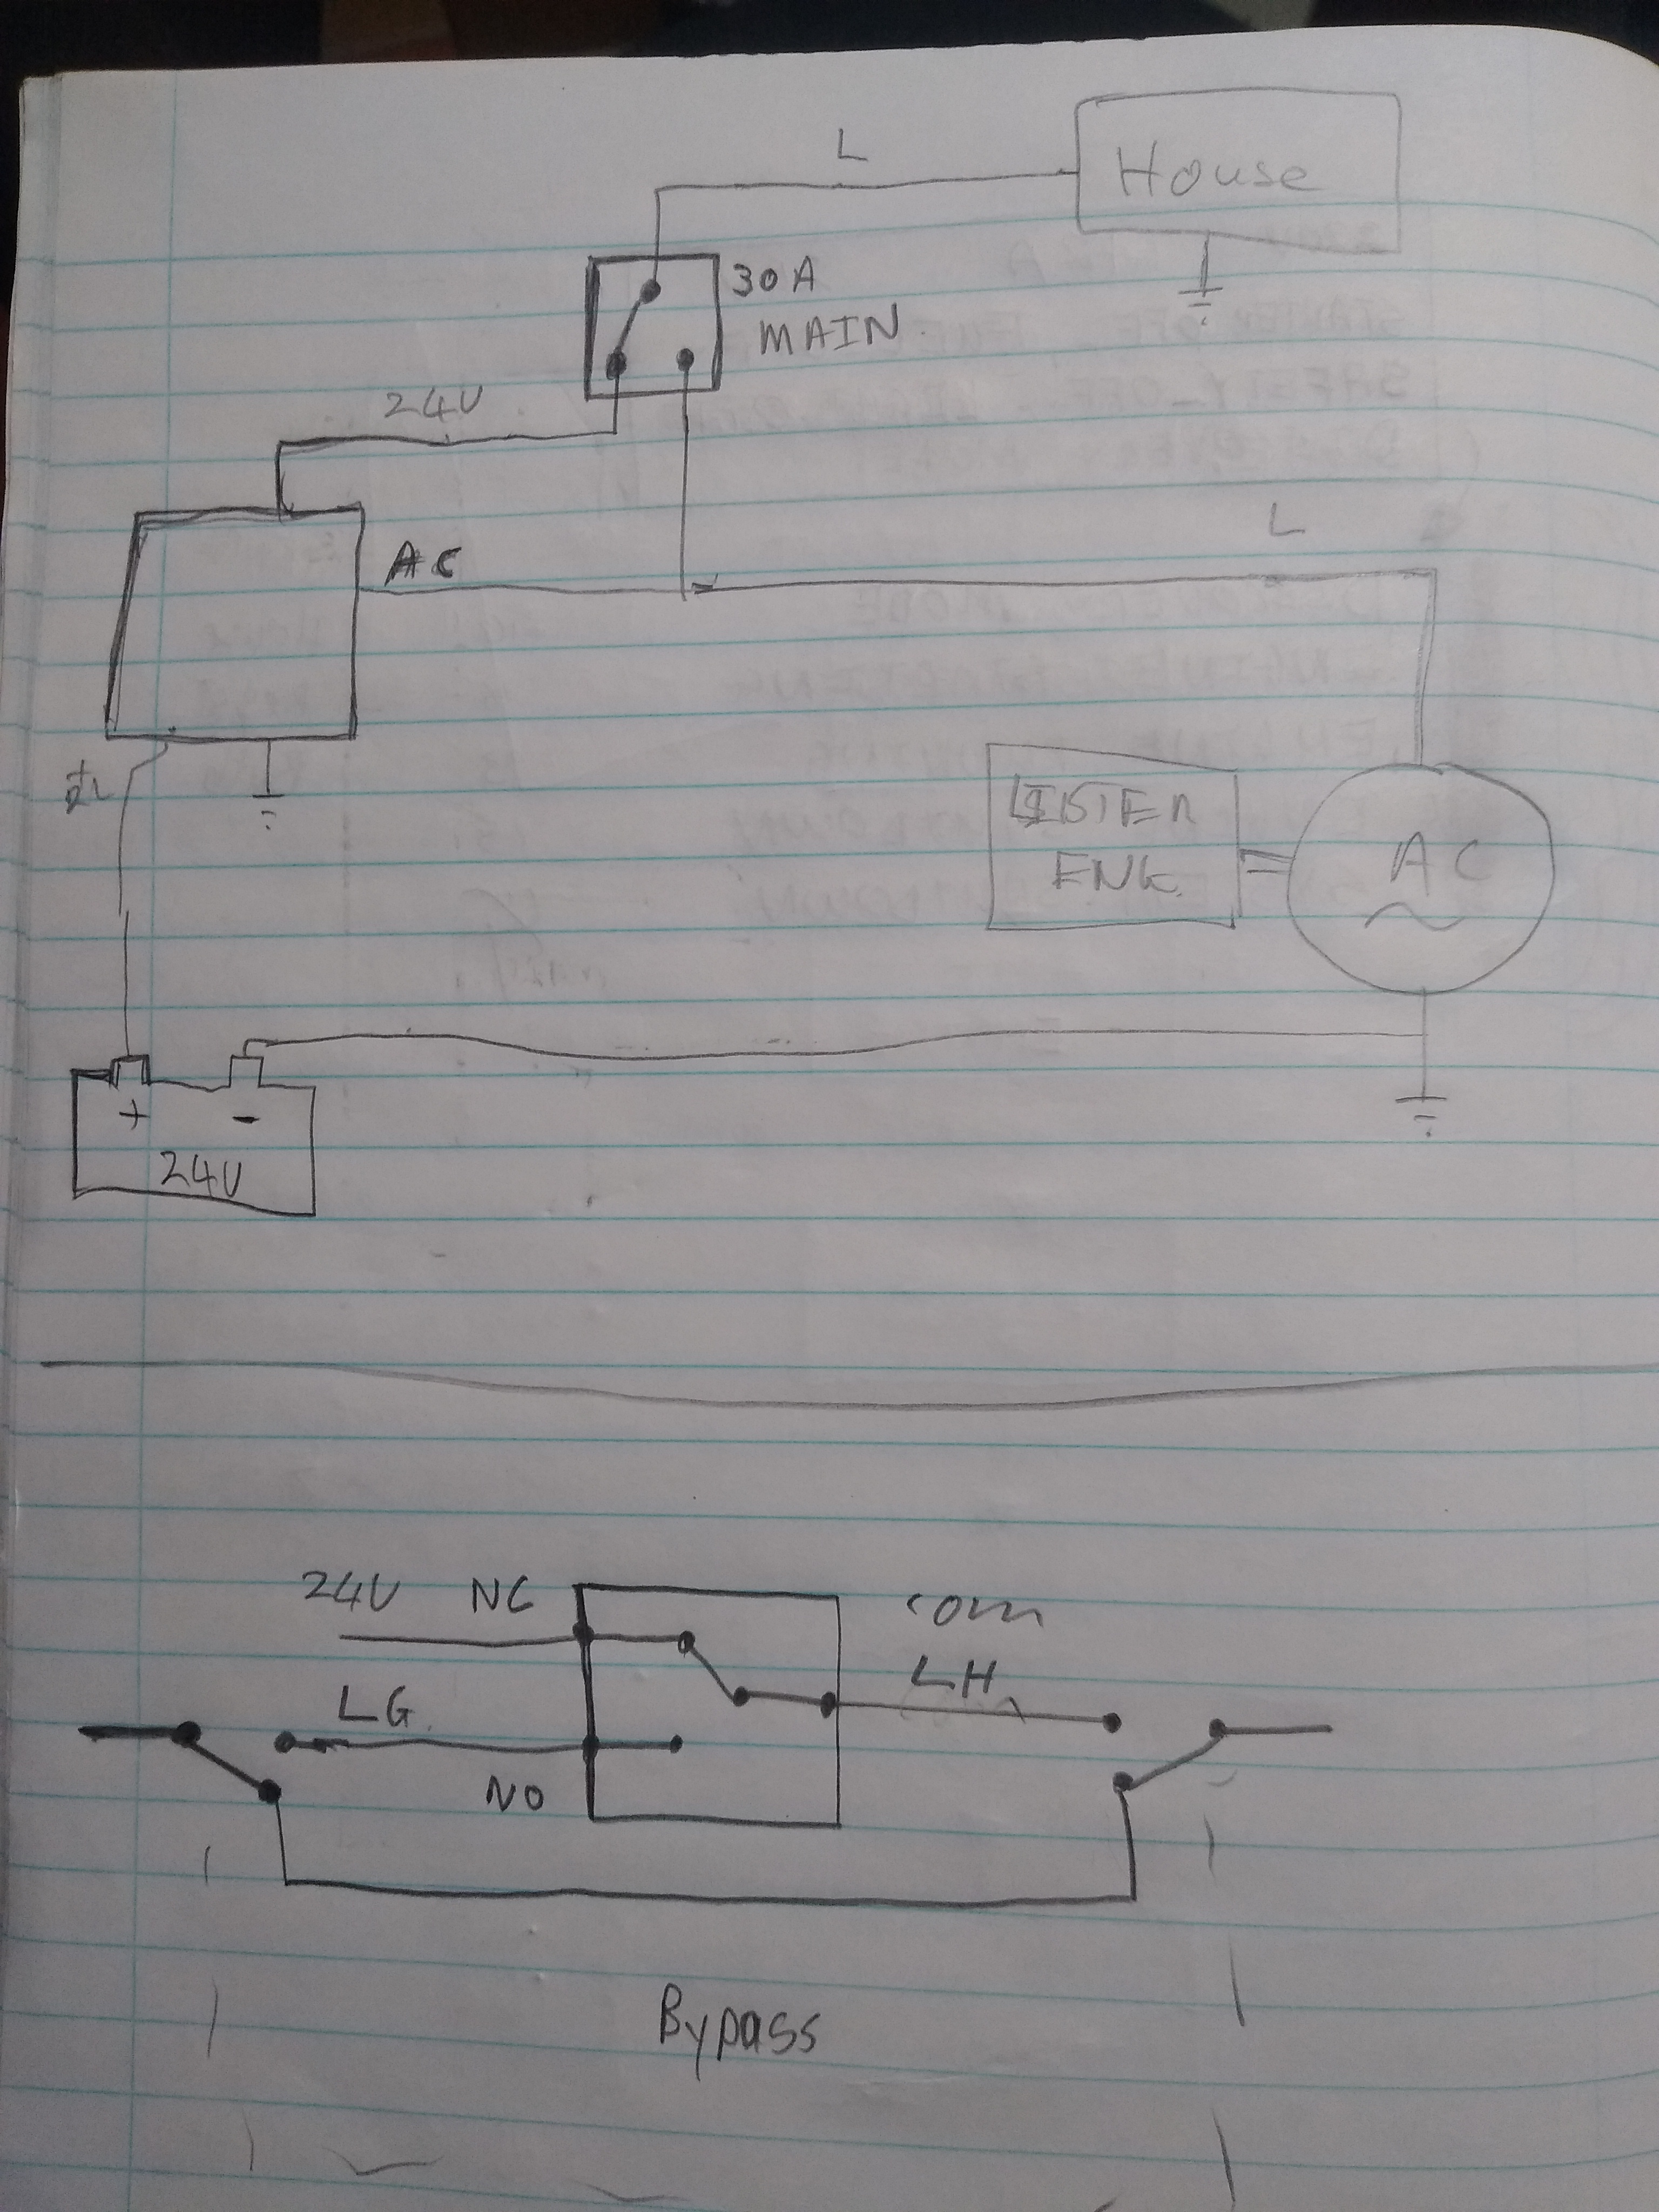 L
House
30A
MAIN.
24V
L
AC
LISTER
ENG.
AC
+ -
24V
24V NC com
LH
LG.
NO
Bypass